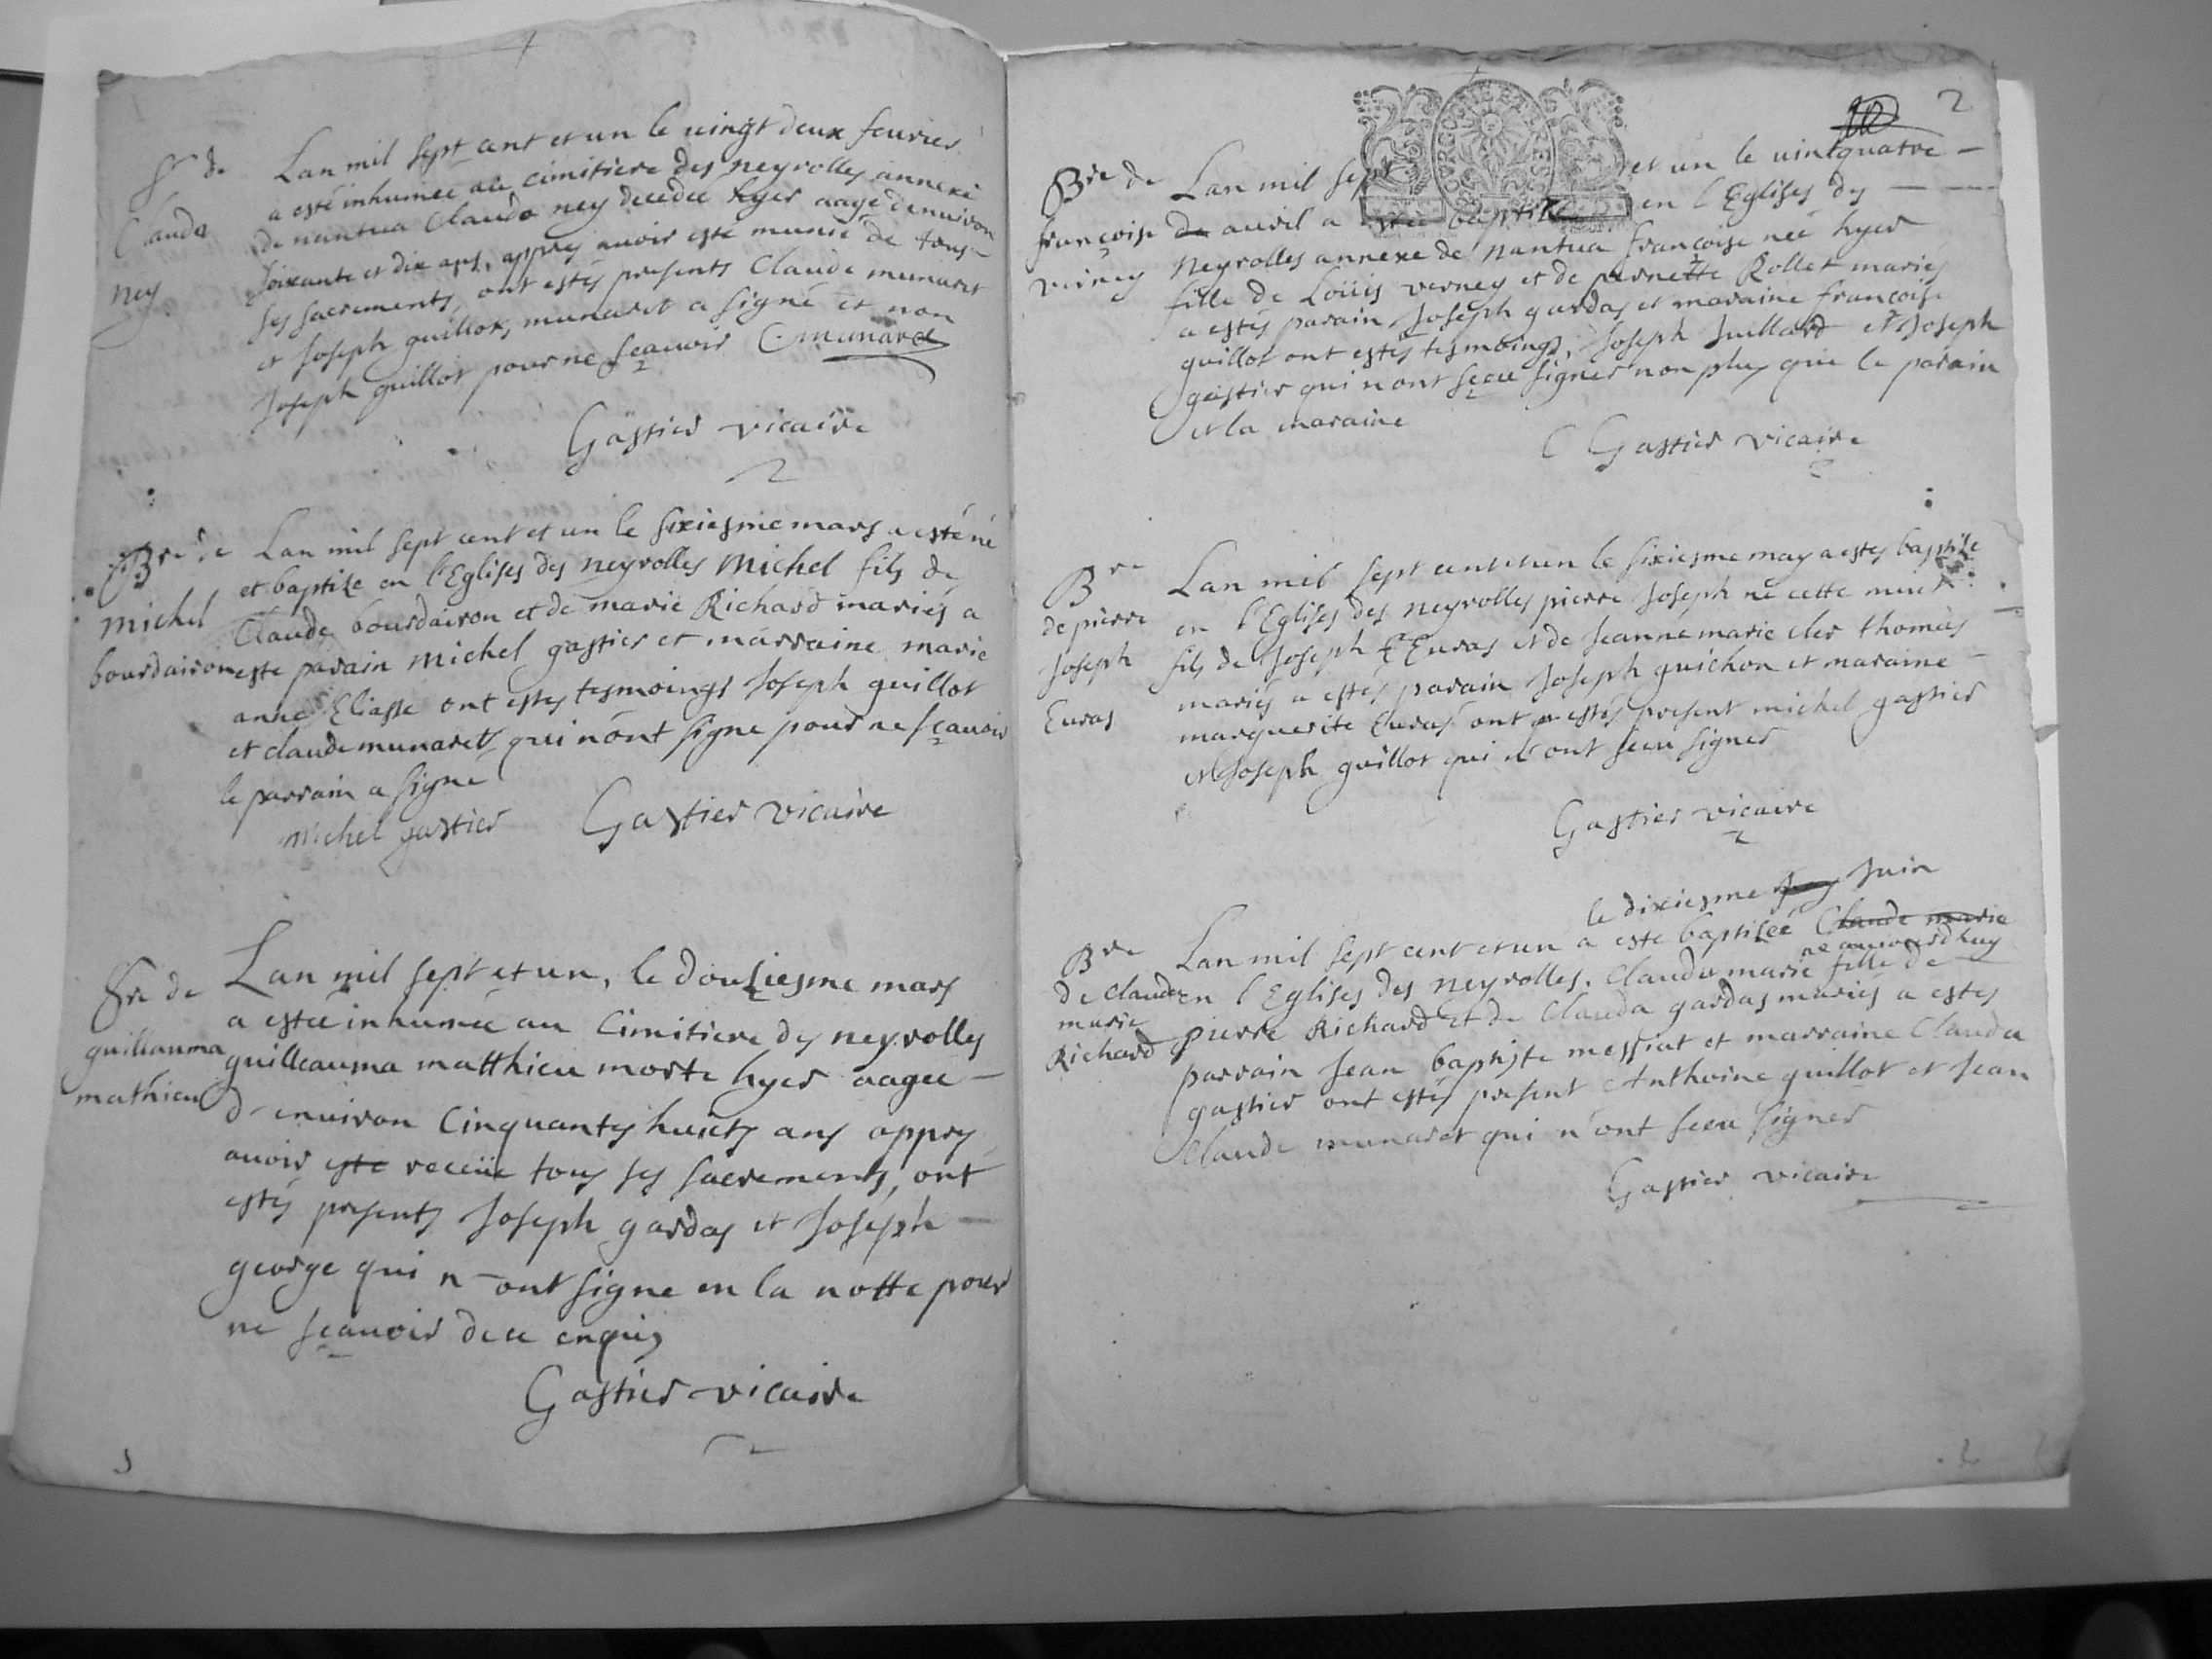 Sre de
Clauda
ney
Lan mil sept cent et un le vingt deux feuvrier
a esté inhumée au cimitiere des neyrolles annexe
de nantua Clauda ney decedee hyer aagé denuiron
soixante et dix ans, appres auoir esté munie de tous
ses sacrements, ont estés presents Claude munaret
et Joseph guillot, munaret a signé et non
Joseph guillot pour ne sçauoir C munaret
Gastier vicaire
Bre de
michel
bourdairon
Lan mil sept cent et un le sixiesme mars a esté né
et baptize en l'Eglises des neyrolles Michel fils de
Claude bourdairon et de marie Richard mariés a
este parain michel gastier et marraine marie
anne Eliasse ont estes tesmoings Joseph guillot
et claude munaret qui nont signe pour ne sçauoir
le parrain a signe
michel gastier Gastier vicaire
Sre de
guillauma
mathieu
Lan mil sept et un, le douziesme mars
a estée inhumée au Cimitiere des neyrolles
guilleauma matthieu morte hyer aagee
d'enuiron Cinquantes huicts ans appres
auoir este receüe tous ses sacrements, ont
estés presents Joseph gardas et Joseph
george qui n'ont signe en la notte pour
ne sçauoir de ce enquis
Gastier vicaire
2
Bre de
françoise
verney
Lan mil sept et un le vintquatre
de auril a estée baptize en l'Eglises des
Neyrolles annexe de nantua françoise née hyer
fille de Loüis verney et de pernette Rollet mariés
a estés parain Joseph gardas et maraine francoise
guillot ont estés tesmoings, Joseph Juillard et Joseph
gastier qui nont sçeu signer non plus que le parain
et la maraine
Gastier vicaire
Bre
de pierre
Joseph
Euras
Lan mil sept cent et un le sixiesme may a estes baptize
en l'Eglises des neyrolles pierre Joseph né cette nuict
fils de Joseph Euras et de Jeanne marie cler thomas
mariés a estés parain Joseph guichon et maraine
marguerite Euras ont estés present michel gastier
et Joseph guillot qui n'ont sceu signer
Gastier vicaire
Bre
de claude
marie
Richard
le dixiesme Juin
Lan mil sept cent et un a este baptisée Claude marie
ne auiourdhuy
en l'Eglises des neyrolles. Claude marie fille de
pierre Richard et de Clauda gardas mariés a estes
parrain Jean baptiste messiat et marraine Clauda
gastier ont estés present Anthoine guillot et Jean
Claude munaret qui n'ont sceu signer
Gastier vicaire